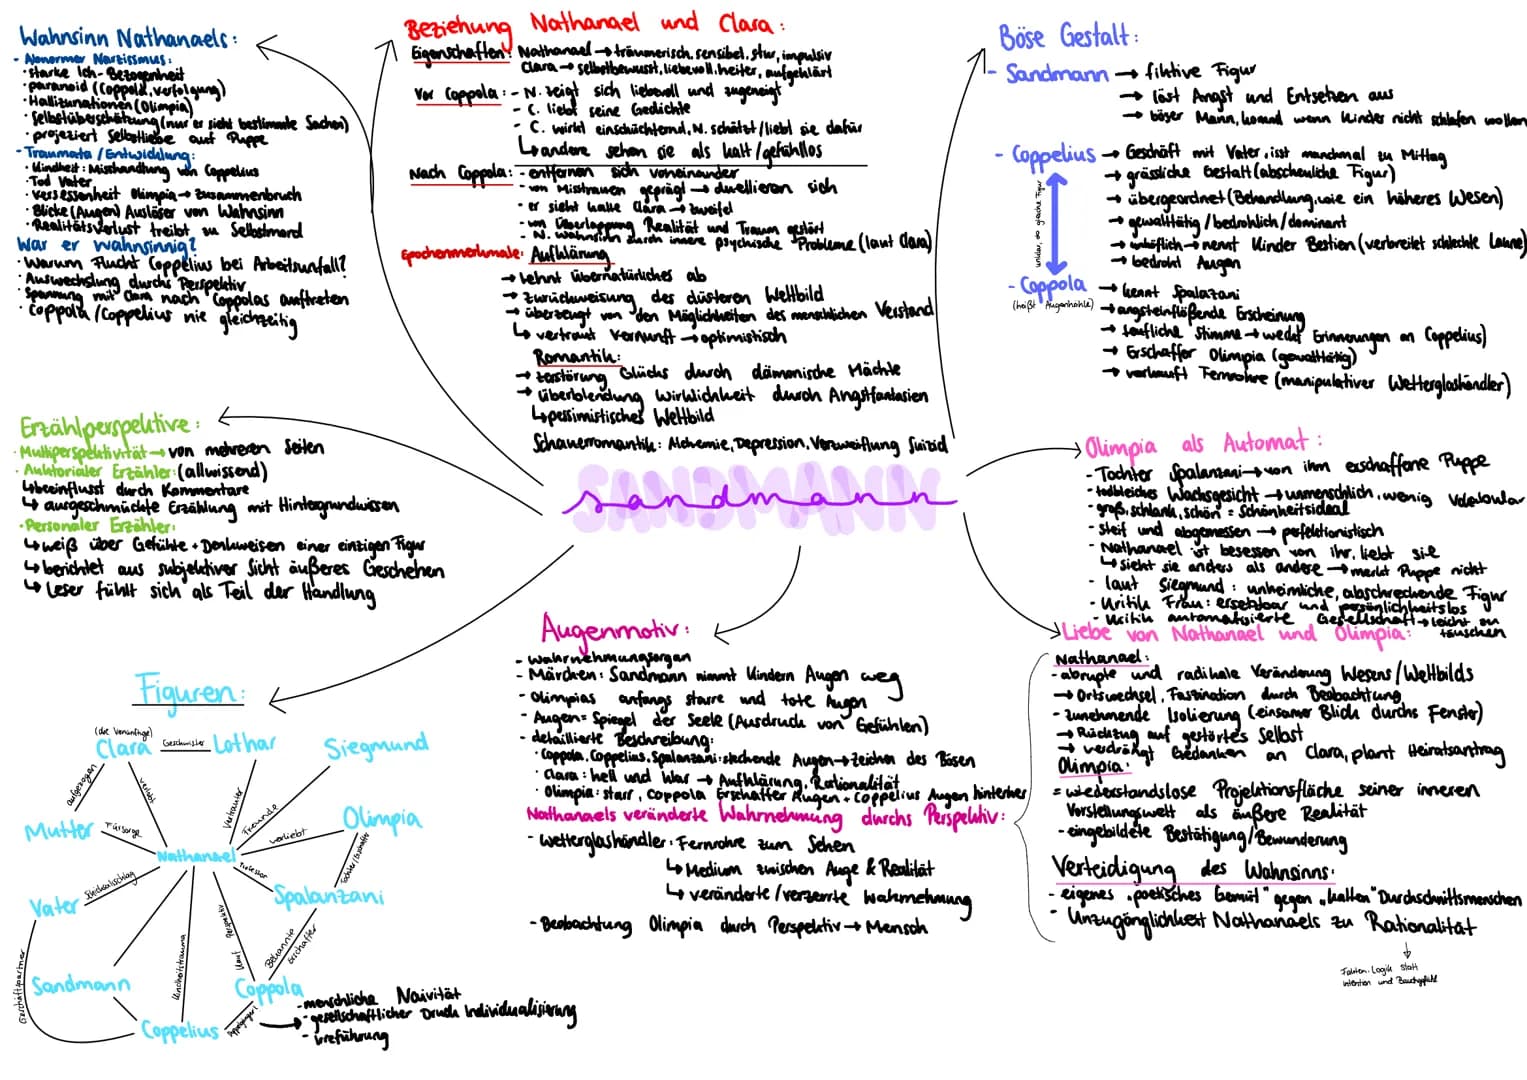 Wahnsinn Nathanaels:
- Abnormer Narzissmus:
· starke Ich-Bezogenheit
· paranoid (Coppola, verfolgung)
· Hallizunationen (Olimpia)
· Selbstüberschätzung (nur er sieht bestimmte Sachen)
· projeziert Selbstliebe auf Puppe
- Traumata / Entwicklung:
· Kindheit: Misshandlung von Coppelius
· Tod Vater
· Versessenheit Olimpia → Zusammenbruch
· Blicke (Augen) Auslöser von Wahnsinn
· Realitätsverlust treibt zu Selbstmord
War er wahnsinnig?
· Warum Flucht Coppelius bei Arbeitsunfall?
· Auswechslung durchs Perspektiv
· Spannung mit Clara nach Coppolas auftreten
· Coppola / Coppelius nie gleichzeitig
Beziehung Nathanael und Clara:
Eigenschaften: Nathanael → träumerisch, sensibel, stur, impulsiv
Clara → selbstbewusst, liebevoll, heiter, aufgeklärt
Vor Coppola: - N. zeigt sich liebevoll und zugeneigt
- C. liebt seine Gedichte
- C. wirkt einschüchternd, N. schätzt/liebt sie dafür
↳ andere sehen sie als kalt/gefühllos
Nach Coppola: - entfernen sich voneinander
- von Misstrauen geprägt → duellieren sich
- er sieht kalte Clara → zweifel
- von Überlappung Realität und Traum gestört
- N. Wahnsinn durch innere psychische Probleme (laut Clara)
Epochenmerkmale: Aufklärung
→ lehnt übernatürliches ab
→ zurückweisung des düsteren Weltbild
→ überzeugt von den Möglichkeiten des menschlichen Verstand
↳ vertraut Vernunft → optimistisch
Romantik:
→ zerstörung Glücks durch dämonische Mächte
→ überblendung Wirklichkeit durch Angstfantasien
↳ pessimistisches Weltbild
Schauerromantik: Alchemie, Depression, Verzweiflung Suizid
Böse Gestalt:
- Sandmann → fiktive Figur
→ löst Angst und Entsetzen aus
→ böser Mann, kommt wenn Kinder nicht schlafen wollen
- Coppelius → Geschäft mit Vater, isst manchmal zu Mittag
→ grässliche Gestalt (abscheuliche Figur)
→ übergeordnet (Behandlung wie ein höheres Wesen)
→ gewalttätig / bedrohlich / dominant
→ unhöflich → nennt Kinder Bestien (verbreitet schlechte Laune)
→ bedroht Augen
unklar, ob gleiche Figur
- Coppola → kennt Spalazani
(heißt Augenhöhle)
→ angsteinflößende Erscheinung
→ teufliche Stimme → weckt Erinnerungen an Coppelius)
→ Erschaffer Olimpia (gewalttätig)
→ verkauft Fernrohre (manipulativer Wetterglashändler)
Erzählperspektive:
· Multiperspektivität → von mehreren Seiten
· Auktorialer Erzähler: (allwissend)
↳ beeinflusst durch Kommentare
↳ ausgeschmückte Erzählung mit Hintergrundwissen
· Personaler Erzähler:
↳ weiß über Gefühle + Denkweisen einer einzigen Figur
↳ berichtet aus subjektiver Sicht äußeres Geschehen
↳ Leser fühlt sich als Teil der Handlung
SANDMANN
sandmann
Olimpia als Automat:
- Tochter Spalanzani → von ihm erschaffene Puppe
- todbleiches Wachsgesicht → unmenschlich, wenig Vokabular
- groß, schlank, schön = Schönheitsideal
- steif und abgemessen → perfektionistisch
- Nathanael ist besessen von ihr, liebt sie
↳ sieht sie anders als andere → merkt Puppe nicht
- laut Siegmund: unheimliche, abschreckende Figur
- Kritik Frau: ersetzbar und persönlichkeitslos
- Kritik automatisierte Gesellschaft → leicht zu täuschen
Liebe von Nathanael und Olimpia:
Nathanael:
- abrupte und radikale Veränderung Wesens / Weltbilds
→ Ortswechsel, Faszination durch Beobachtung
- zunehmende Isolierung (einsamer Blick durchs Fenster)
→ Rückzug auf gestörtes Selbst
→ verdrängt Gedanken an Clara, plant Heiratsantrag
Olimpia:
= wiederstandslose Projektionsfläche seiner inneren
Vorstellungswelt als äußere Realität
- eingebildete Bestätigung/Bewunderung
Verteidigung des Wahnsinns:
- eigenes „poetisches Gemüt" gegen „kalten" Durchschnittsmenschen
- Unzugänglichkeit Nathanaels zu Rationalität
↓
Fakten, Logik statt
Intention und Bauchgefühl
Augenmotiv:
- Wahrnehmungsorgan
- Märchen: Sandmann nimmt Kindern Augen weg
- Olimpias anfangs starre und tote Augen
- Augen = Spiegel der Seele (Ausdruck von Gefühlen)
- detaillierte Beschreibung:
· Coppola, Coppelius, Spalanzani: stechende Augen → Zeichen des Bösen
· Clara: hell und klar → Aufklärung, Rationalität
· Olimpia: starr, Coppola Erschaffer Augen + Coppelius Augen hinterher
Nathanaels veränderte Wahrnehmung durchs Perspektiv:
- Wetterglashändler: Fernrohre zum Sehen
↳ Medium zwischen Auge & Realität
↳ veränderte / verzerrte Wahrnehmung
- Beobachtung Olimpia durch Perspektiv → Mensch
Figuren:
(die Vernünftige)
Clara Geschwister Lothar
Siegmund
aufgezogen
verlobt
Vertrauter
Freunde
Mutter
Fürsorge
Nathanael
verliebt
Olimpia
Professor
Tochter/Erschaffer
Vater
Schicksalsschlag
Spalanzani
Kauft Perspektiv
Bekannte Geschäfte
Geschäftspartner
Sandmann
Kindheitstrauma
Coppola
Coppelius
Doppelgänger?
- menschliche Naivität
- gesellschaftlicher Druck Individualisierung
- Irreführung